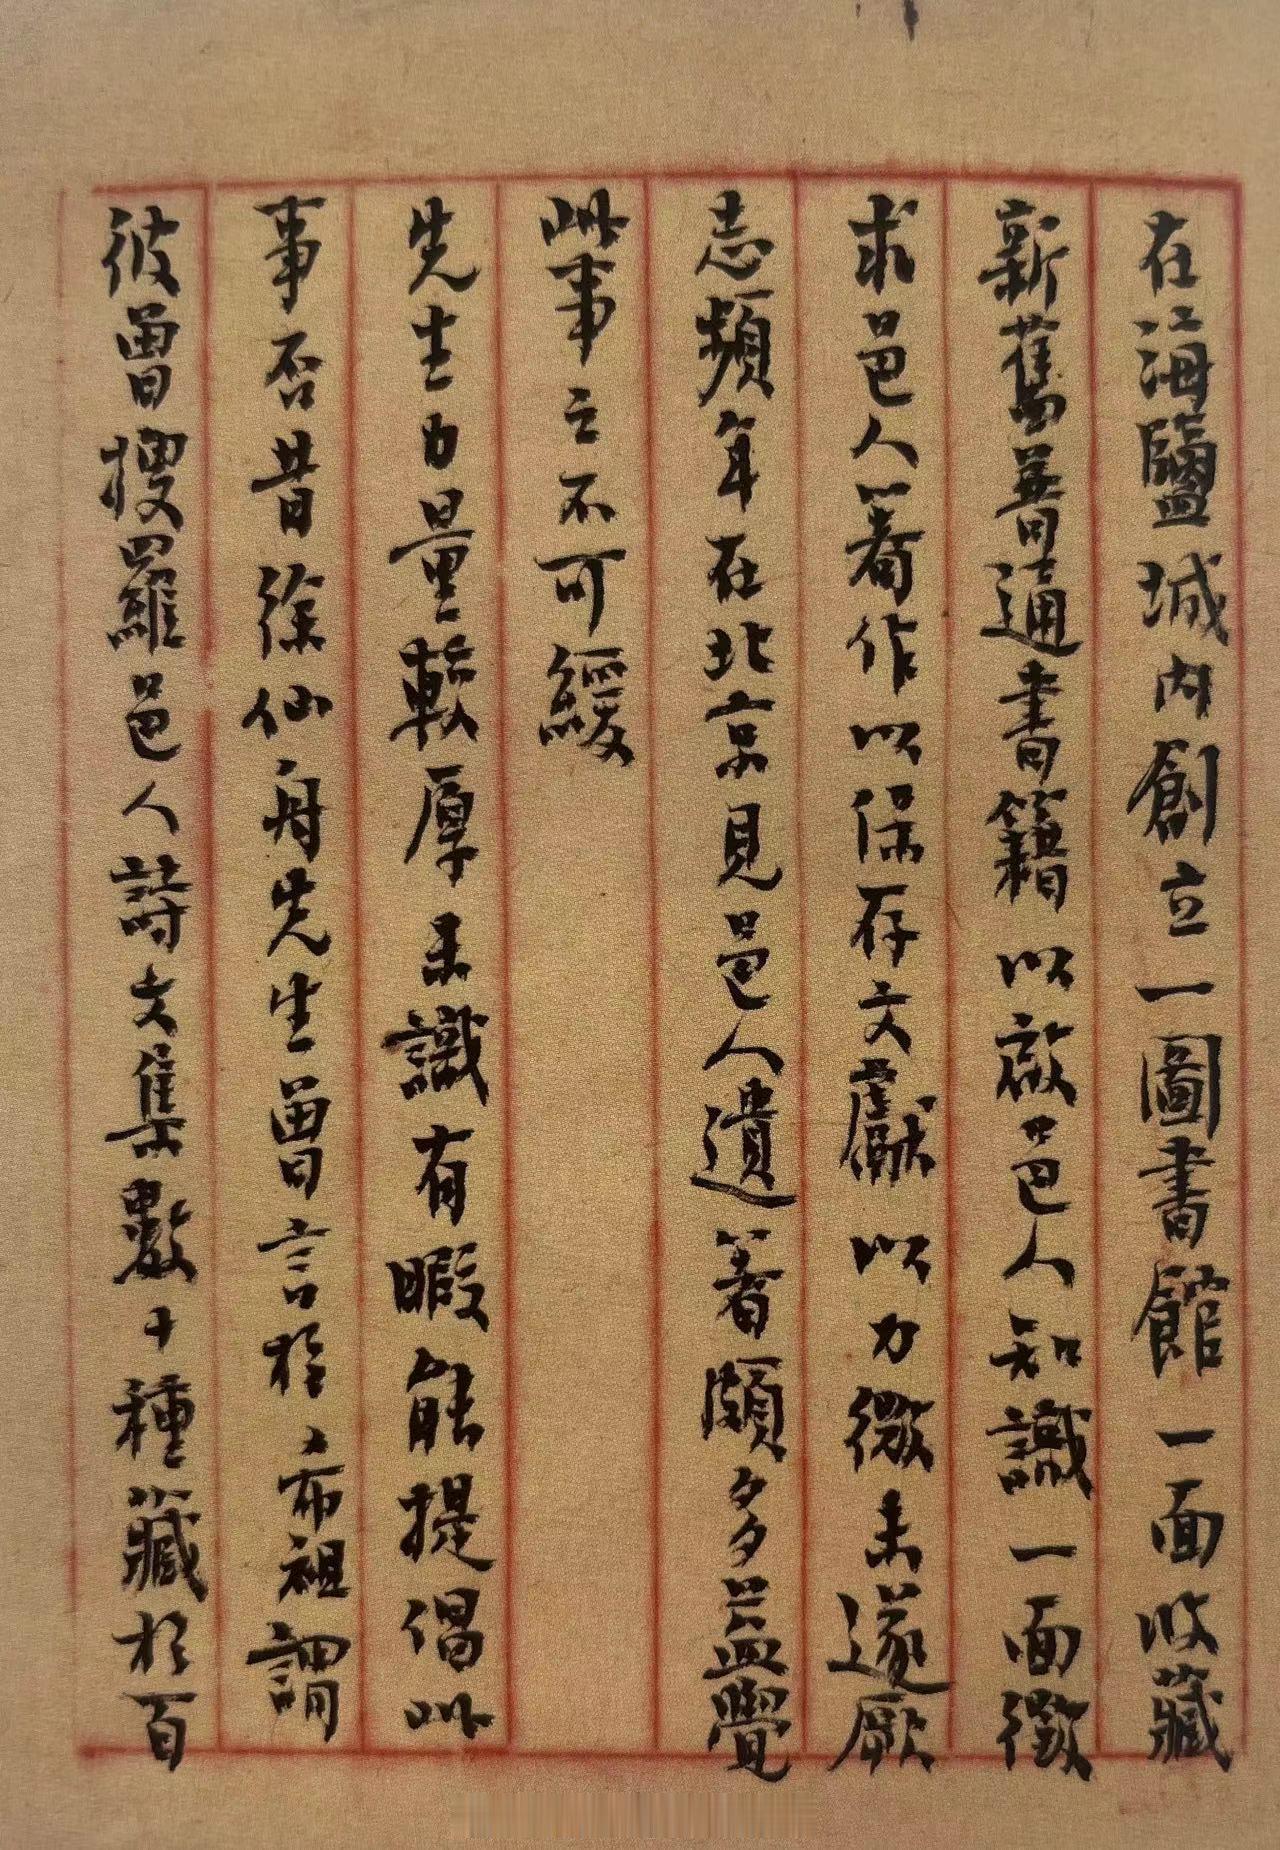 在海鹽城內創立一圖書館一面收藏
新舊普通書籍以啟邑人知識一面徵
求邑人著作以保存文獻以力微未遂厥
志頻年在北京見邑人遺著頗多益覺
此事之不可緩
先生力量較厚未識有暇能提倡此
事否昔徐仙舟先生曾言於ヽ布祖謂
彼曾搜羅邑人詩文集數十種藏於百